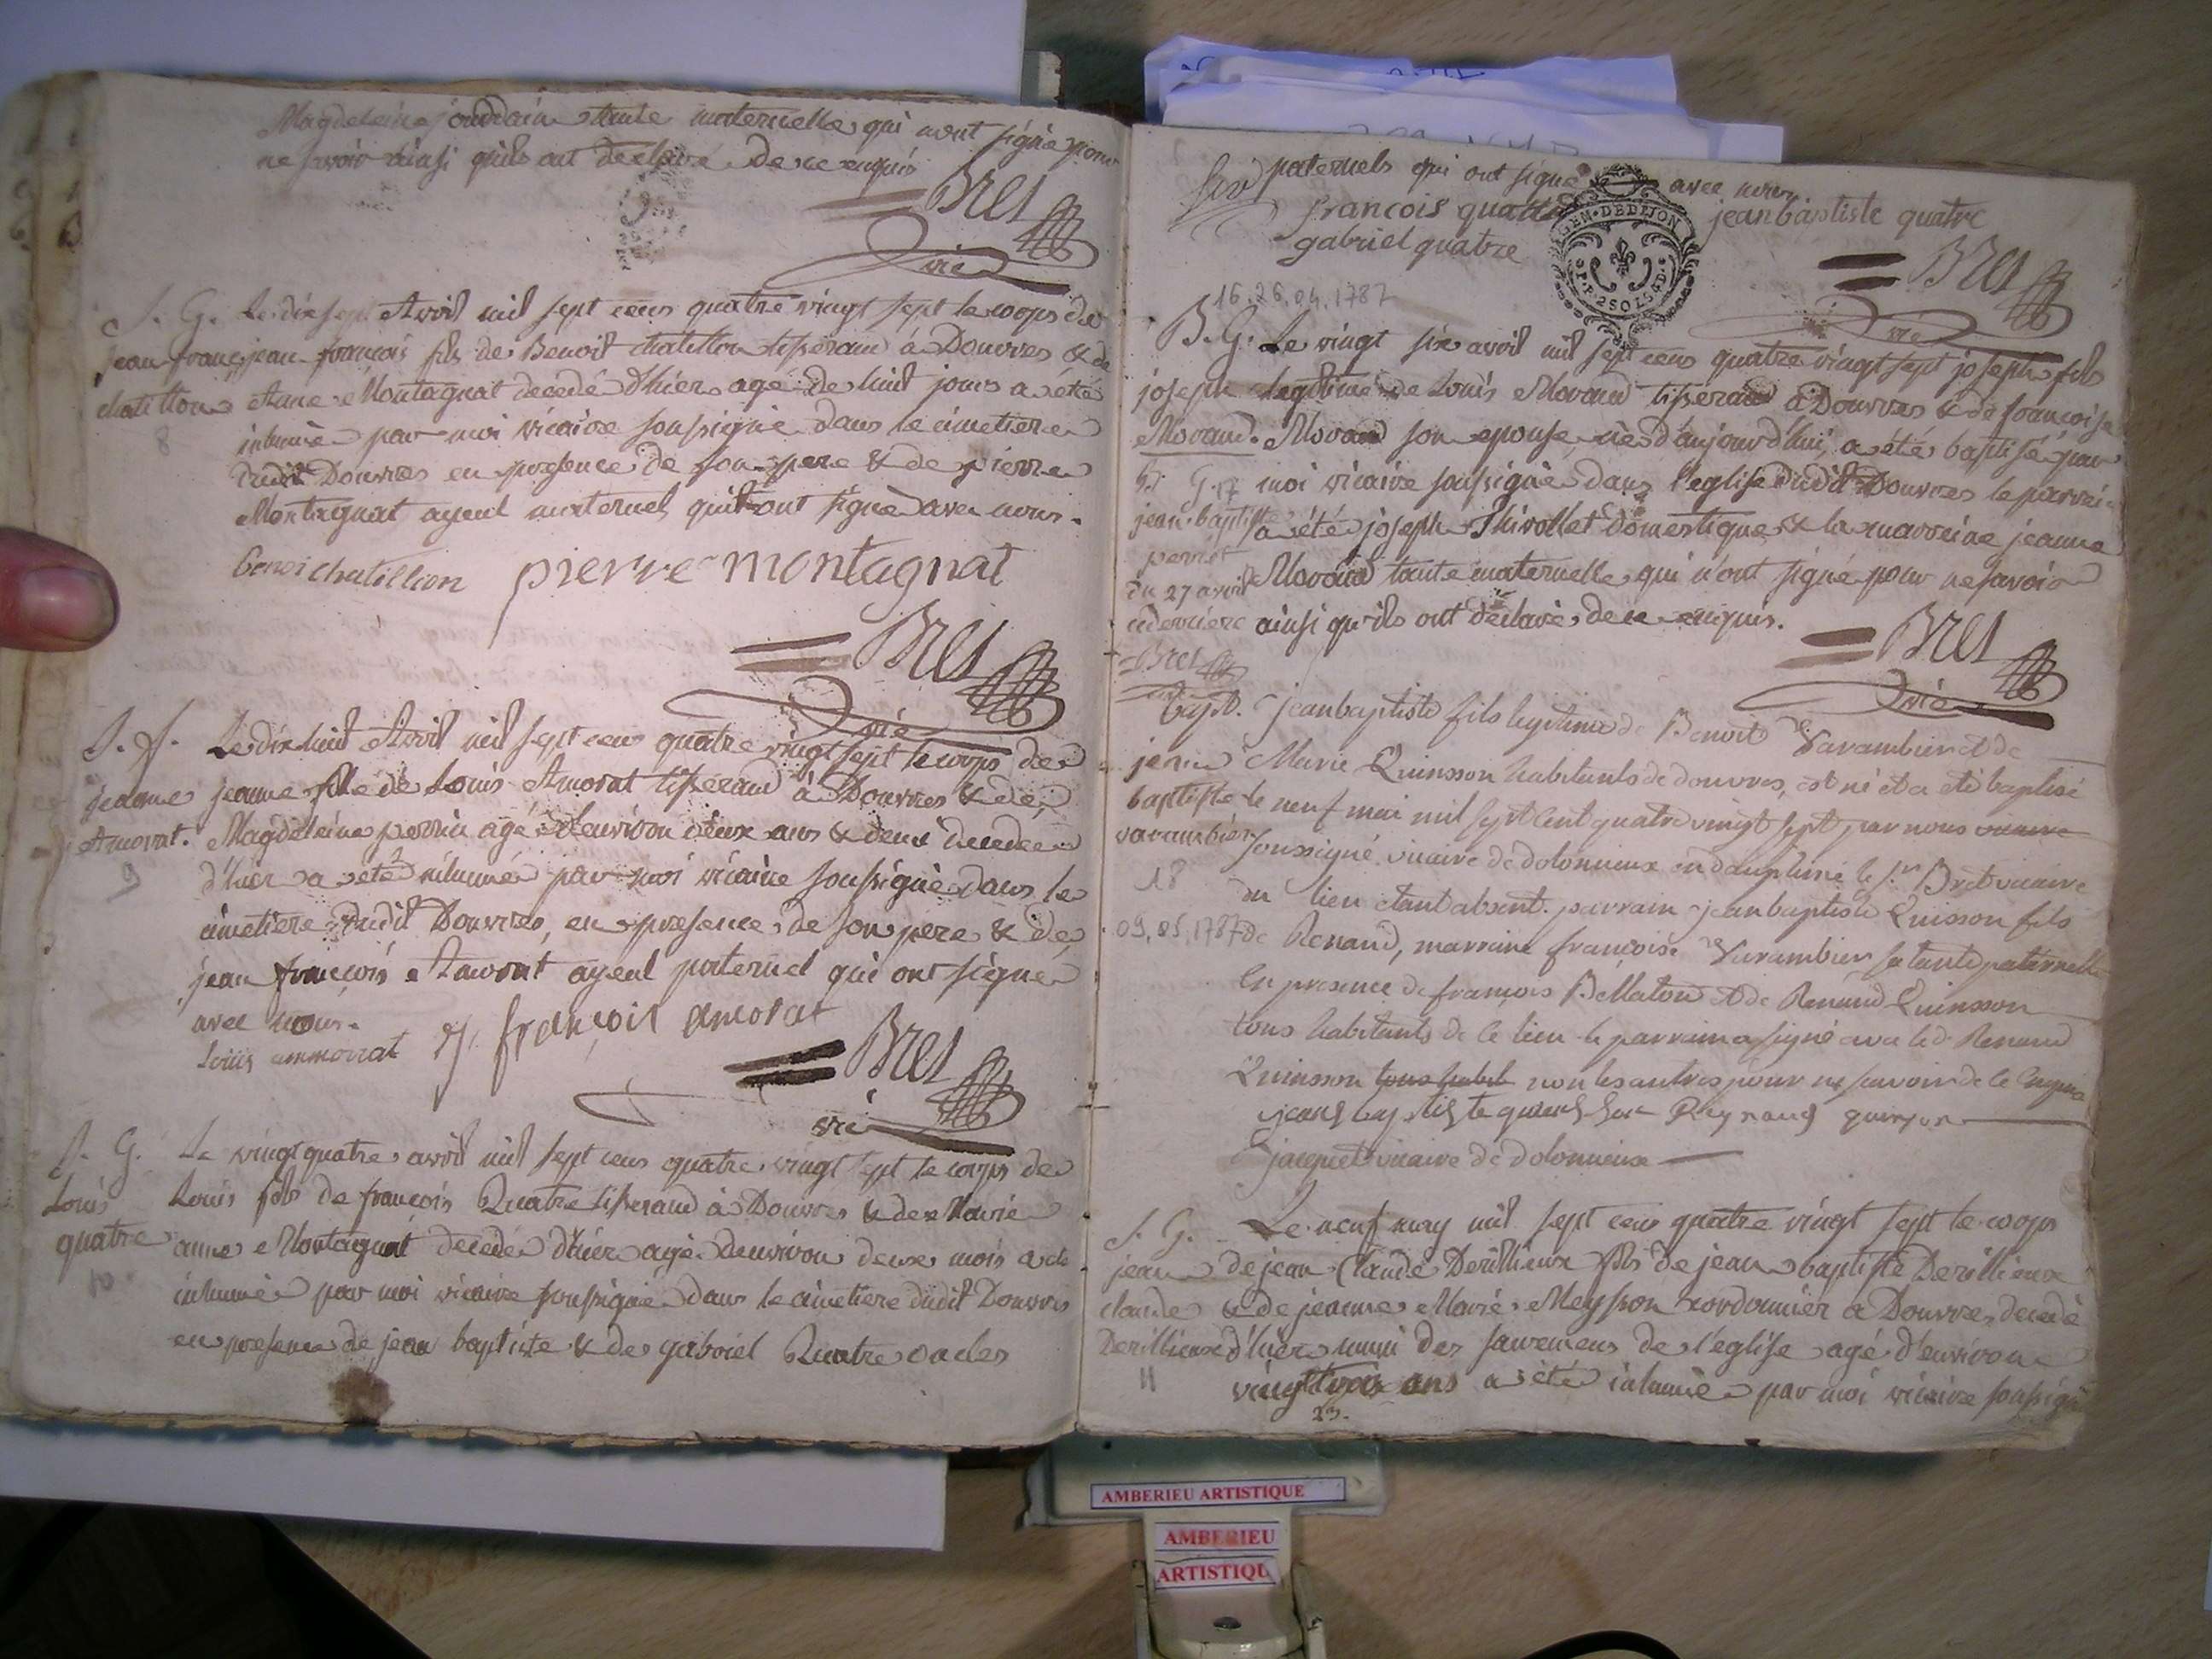 Magdeleine jourdain tante maternelle qui n'ont signé pour
ne savoir ainsi qu'ils ont declaré de ce enquis
Bret
vic
S. G. Le dix sept Avril mil sept cens quatre vingt sept le corps de
jean franç jean françois fils de Benoit chatillon tisserand a Douvres & de
chatillon Anne Montagnat decedé d'hier agé de huit jours a été
8 inhumé par moi vicaire soussigné dans le cimetiere
dudit Douvres en presence de son pere & de pierre
Montagnat ayeul maternel qui ont signé avec nous.
benoi chatillion pierre montagnat
Bret
vic
S. f. Le dix huit Avril mil sept cens quatre vingt sept le corps de
jeanne jeanne fille de Louis Amorat tisserand à Douvres & de
Amorat. Magdeleine perrin agé d'environ deux ans & demi decedée
9 d'hier a été inhumé par moi vicaire soussigné dans le
cimetiere dudit Douvres, en presence de son pere & de
jean françois Amorat ayeul paternel qui ont signé
avec nous.
Louis ammorat J. françois amorat
Bret
vic
S. G. Le vingt quatre avril mil sept cens quatre vingt sept le corps de
Louis Louis fils de françois Quatre tisserand à Douvres & de Marie
quatre anne Montagnat decedé d'hier agé d'environ deux mois a été
10 inhumé par moi vicaire soussigné dans le cimetiere dudit Douvres
en presence de jean baptiste & de gabriel Quatre oncles
paternels qui ont signé avec nous
françois quatre jean baptiste quatre
gabriel quatre
GEN. DE DIJON
Bret
vic
16. 26.04.1787
B. G. Le vingt six avril mil sept cens quatre vingt sept joseph fils
joseph legitime de Louis Morand tisserand à Douvres & de françoise
Morand. Morand son epouse, né d'aujourd'hui, a été baptisé par
G. 17 moi vicaire soussigné dans l'eglise dudit Douvres le parrein
jean baptiste a été joseph Thivollet domestique & la marreine jeanne
perret Morand tante maternelle qui n'ont signé pour ne savoir
du 27 avril
cy derriere ainsi qu'ils ont declaré de ce enquis.
Bret Bret
vic
bapt. jean baptiste fils legitime de Benoit Varambier et de
jean Marie Quinsson habitants de douvres, est né et a eté baptisé
baptiste le neuf mai mil sept cent quatre vingt sept par nous vicaire
varambier soussigné vicaire de dolomieux en dauphiné le sr Bret vicaire
18 du lieu etant absent. parrain jean baptiste Quisson fils
09.05.1787 de Renaud, marraine françoise Varambier sa tante paternelle
En presence de françois Bellaton et de Renaud Quinsson
tous habitants de ce lieu le parrain a signé avec led. Renaud
Quinsson tous habit non les autres pour ne scavoir de ce Enquis
jean baptiste quinson Reynaud quinson
jacquet vicaire de dolomieux
S. G. Le neuf may mil sept cens quatre vingt sept le corps
jean de jean Claude Derillieux fils de jean baptiste Derillieux
claude & de jeanne Marie Meysson cordonnier a Douvres decedé
Derillieux d'hier muni des sacremens de l'église agé d'environ
11 vingt trois ans a été inhumé par moi vicaire soussigné
23.
AMBERIEU ARTISTIQUE
AMBERIEU
ARTISTIQU